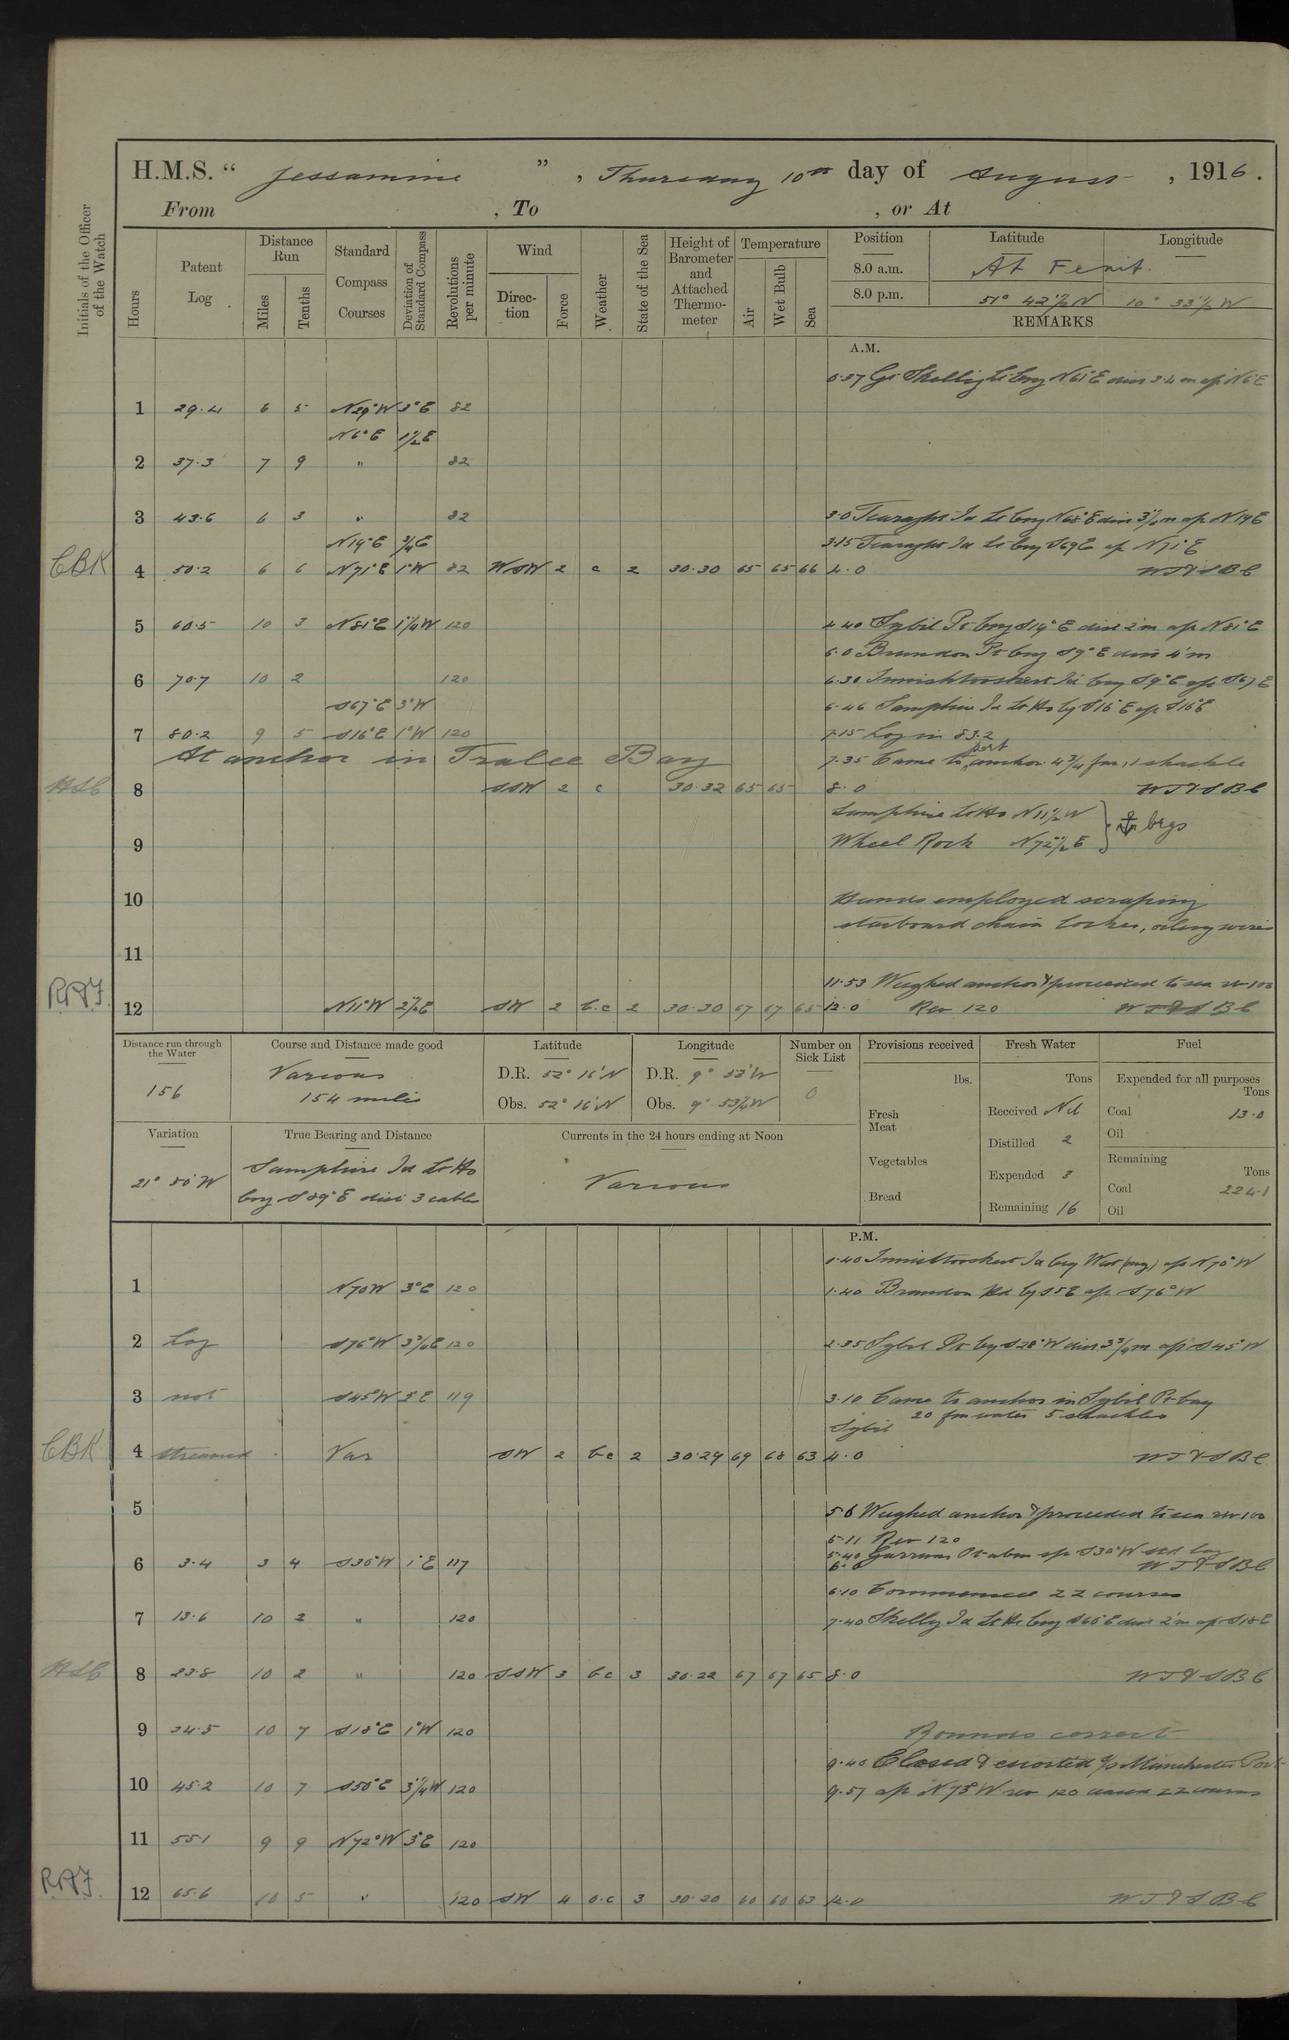 H.M.S. " Jessamine ", Thursday 10th day of August, 1916.
From , To , or At
Initials of the Officer of the Watch
Hours
Patent Log
Distance Run
Miles
Tenths
Standard Compass Courses
Deviation of Standard Compass
Revolutions per minute
Wind
Direction
Force
Weather
State of the Sea
Height of Barometer and Attached Thermometer
Temperature
Air
Wet Bulb
Sea
Position Latitude Longitude
8.0 a.m. At Fenit.
8.0 p.m. 51° 42½'N 10° 33½'W
REMARKS
A.M.
0.37 Gt Skellig Lt brg N61°E dist 3.4 m a/c N6°E
1 29.4 6 5 N29°W 3°E 82
N6°E 1½E
2 37.3 7 9 " 82
3 43.6 6 3 " 82 3.0 Tearaght Id Lt brg N68°E dist 3½ m a/c N19E
N19°E ¾E 3.15 Tearaght Id Lt brg S69E a/c N71°E
CBK 4 50.2 6 6 N71°E 1°W 82 WSW 2 c 2 30.30 65 65 66 4.0 WT&SBC
5 60.5 10 3 N81°E 1¼W 120 4.40 Sybil Pt brg S19°E dist 2'm a/c N81°E
6.0 Brandon Pt brg S9°E dist 4'm
6 70.7 10 2 120 6.30 Innishtooskert Id brg S9°E a/c S67E
S67°E 3°W 6.46 Samphire Id Lt Ho bg S16°E a/c S16°E
7 80.2 9 5 S16°E 1°W 120 7.15 Log in 83.2
At anchor in Tralee Bay 7.35 Came to port anchor 4¾ fm, 1 shackle
HSC 8 SSW 2 c 30.32 65 65 8.0 WT&SBC
Samphire Lt Ho N11½W
9 Wheel Rock N72½E } ⚓ brgs
10 Hands employed scraping
starboard chain locker, oiling wires
11
11.53 Weighed anchor & proceeded to sea rev 100
RAF. 12 N11°W 2½E SW 2 b.c 2 30.30 67 67 65 12.0 Rev 120 WT&SBC
Distance run through the Water
156
Course and Distance made good
Various
154 miles
Latitude
D.R. 52° 16'N
Obs. 52° 16'N
Longitude
D.R. 9° 53'W
Obs. 9° 53¾'W
Number on Sick List
0
Provisions received
lbs.
Fresh Meat
Vegetables
Bread
Fresh Water
Tons
Received Nil
Distilled 2
Expended 3
Remaining 16
Fuel
Expended for all purposes
Tons
Coal 13.0
Oil
Remaining
Tons
Coal 224.1
Oil
Variation
21° 50'W
True Bearing and Distance
Samphire Id Lt Ho
brg S89°E dist 3 cables
Currents in the 24 hours ending at Noon
Various
P.M.
0.40 Innishtooskert Id brg West (mag) a/c N70°W
1 N70W 3°E 120 1.40 Brandon Hd bg S5E a/c S76°W
2 Log S76°W 3¾E 120 2.35 Sybil Pt bg S28°W dist 3¾m a/c S45°W
3 not S45W 3°E 119 3.10 Came to anchor in Sybil Pt bay
20 fm water 5 shackles
Sybil
CBK 4 streamed Var SW 2 bc 2 30.24 69 68 63 4.0 WT&SBC
5 5.6 Weighed anchor & proceeded to sea rev 100
5.11 Rev 120
5.40 Garraun Pt abm a/c S30°W std log
6 3.4 3 4 S30°W 1°E 117 6.0 WT&SBC
6.10 Commenced ZZ courses
7 13.6 10 2 " 120 7.40 Skellig Id Lt Ho brg S60°E dist 2'm a/c S18E
HSC 8 23.8 10 2 " 120 SSW 3 bc 3 30.22 67 67 65 8.0 WT&SBC
9 34.5 10 7 S18°E 1°W 120 Rounds correct
9.40 Closed & escorted S/S Manchester Port
10 45.2 10 7 S50°E 3¼W 120 9.57 a/c N73°W rev 120 ceased ZZ courses
11 55.1 9 9 N72°W 3°E 120
RAF. 12 65.6 10 5 " 120 SW 4 o.c 3 30.20 60 60 63 12.0 WT&SBC